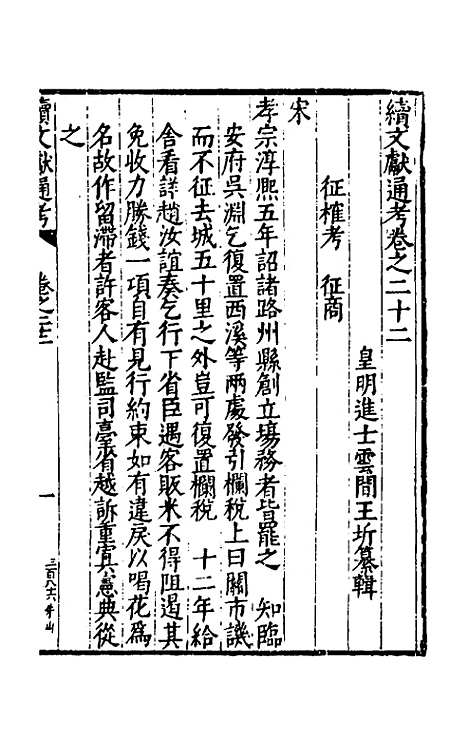 續文獻通考卷之二十二
皇明進士雲間王圻纂輯
征榷考 征商
宋
孝宗淳熙五年詔諸路州縣創立場務者皆罷之 知臨
安府吳淵乞復置西溪等兩處發引欄稅上曰關市譏
而不征去城五十里之外豈可復置欄稅 十二年給
舍看詳趙汝誼奏乞行下省臣遇客販米不得阻遏其
免收力勝錢一項自有見行約束如有違戾以喝花為
名故作留滯者許客人赴監司臺省越訴重寘憲典從
之
續文獻通考
卷之二十二
一
三百八六